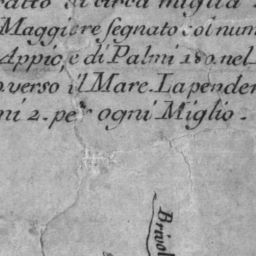 di circa miglia
Maggiore segnato col num
Appio, e di Palmi 180. nel
. verso il Mare. La penden
ni 2. per ogni Miglio.
Brivol